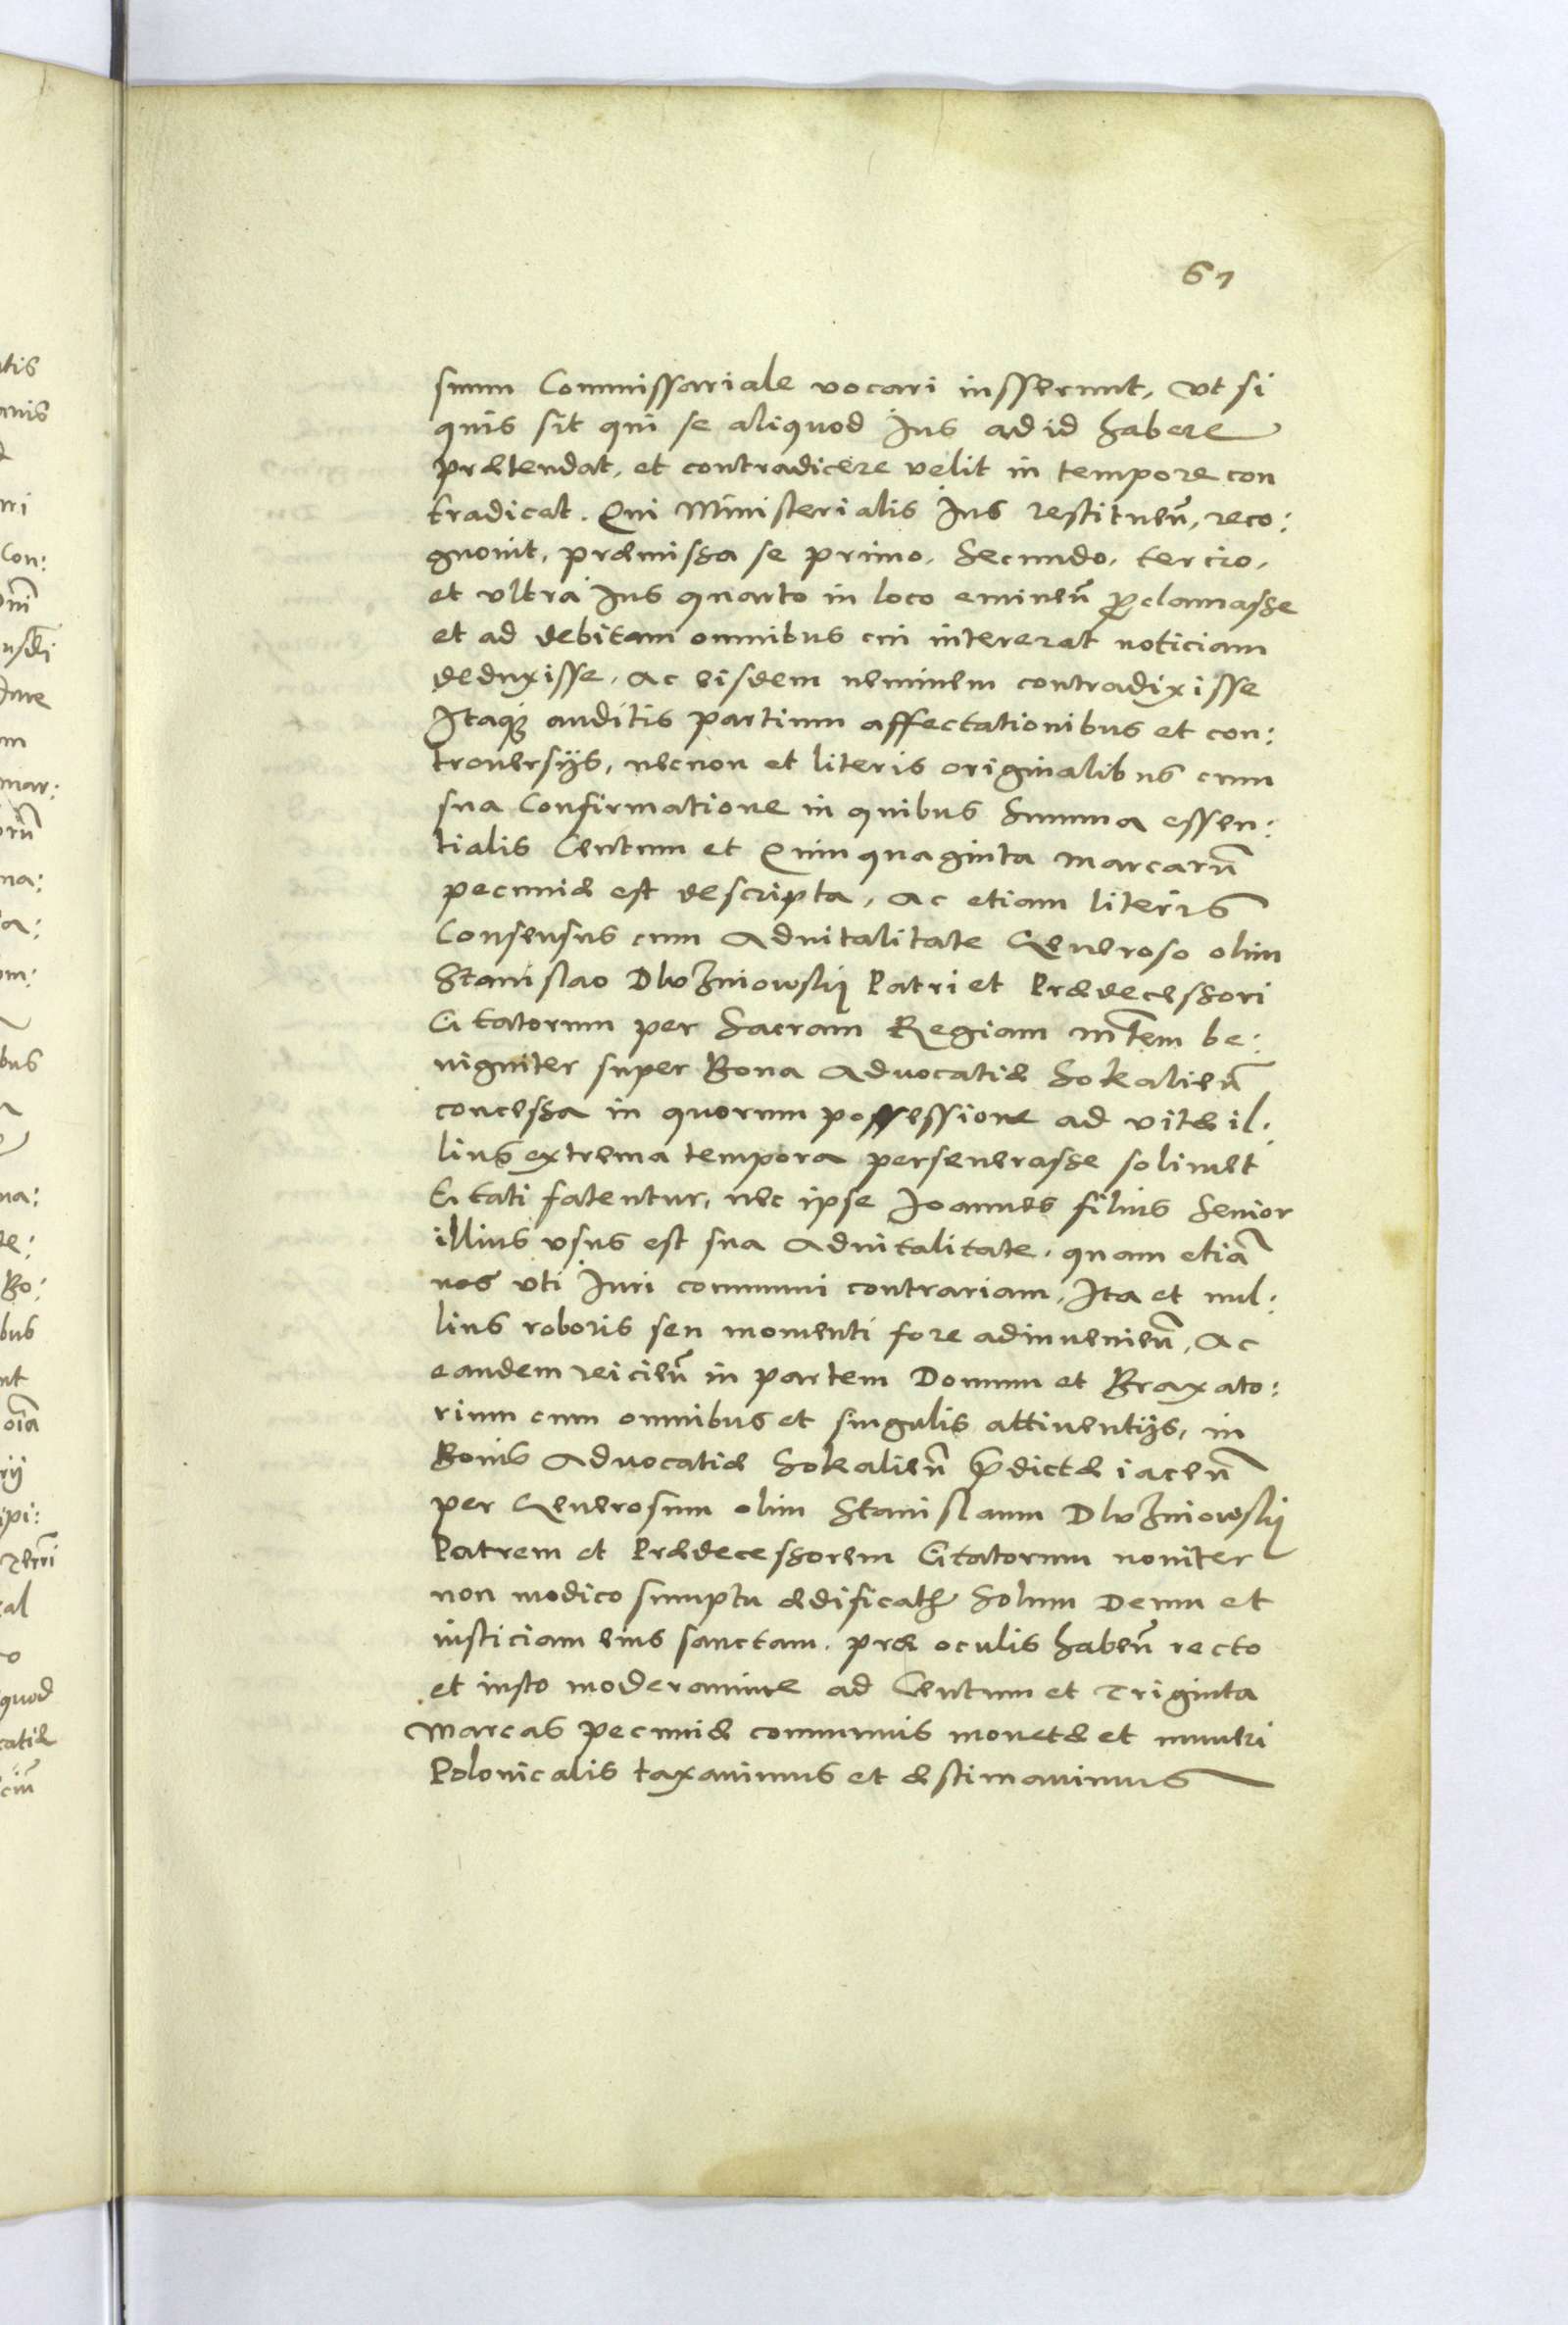 61
suum Commissariale vocari iusserunt, vt si
quis sit qui se aliquod Ius ad id habere
prætendat, et contradicere velit in tempore con
tradicat. Qui Ministerialis Ius restitueñ, reco:
gnouit, præmissa se primo, Secundo, tercio,
et vltra Ius quarto in loco emineñ ꝓclamasse
et ad debitam omnibus cui intererat noticiam
deduxisse, Ac eisdem neminem contradixisse
Itaqꝫ auditis partium affectationibus et con:
trouersijs, necnon et literis originalibus cum
sua Confirmatione in quibus Summa essen:
tialis Centum et Quinquaginta marcarũ
pecuniæ est descripta, Ac etiam literis
Consensus cum Aduitalitate Generoso olim
Stanislao Dlużniowskij Patri et Prædecessori
Citatorum per Sacram Regiam Mtem be:
nigniter super Bona Aduocatiæ Sokalieñ
concessa in quorum possessione ad vitæ il:
lius extrema tempora perseuerasse solimet
Citati fatentur, nec ipse Joannes filius Senior
illius vsus est sua Aduitalitate, quam etiã
nos vti Iuri communi contrariam, Ita et nul:
lius roboris seu momenti fore adinuenieñ, Ac
eandem reicieñ in partem Domum et Braxato:
rium cum omnibus et singulis attinentijs, in
Bonis Aduocatiæ Sokalieñ p̃dictæ iaceñ
per Generosum olim Stanislaum Dlużniowskij
Patrem et Prædecessorem Citatorum nouiter
non modico sumptu ædificatꝫ Solum Deum et
iusticiam eius sanctam, præ oculis habeñ recto
et iusto moderamine ad Centum et Triginta
Marcas pecuniæ communis monetæ et numeri
Polonicalis taxauimus et æstimauimus